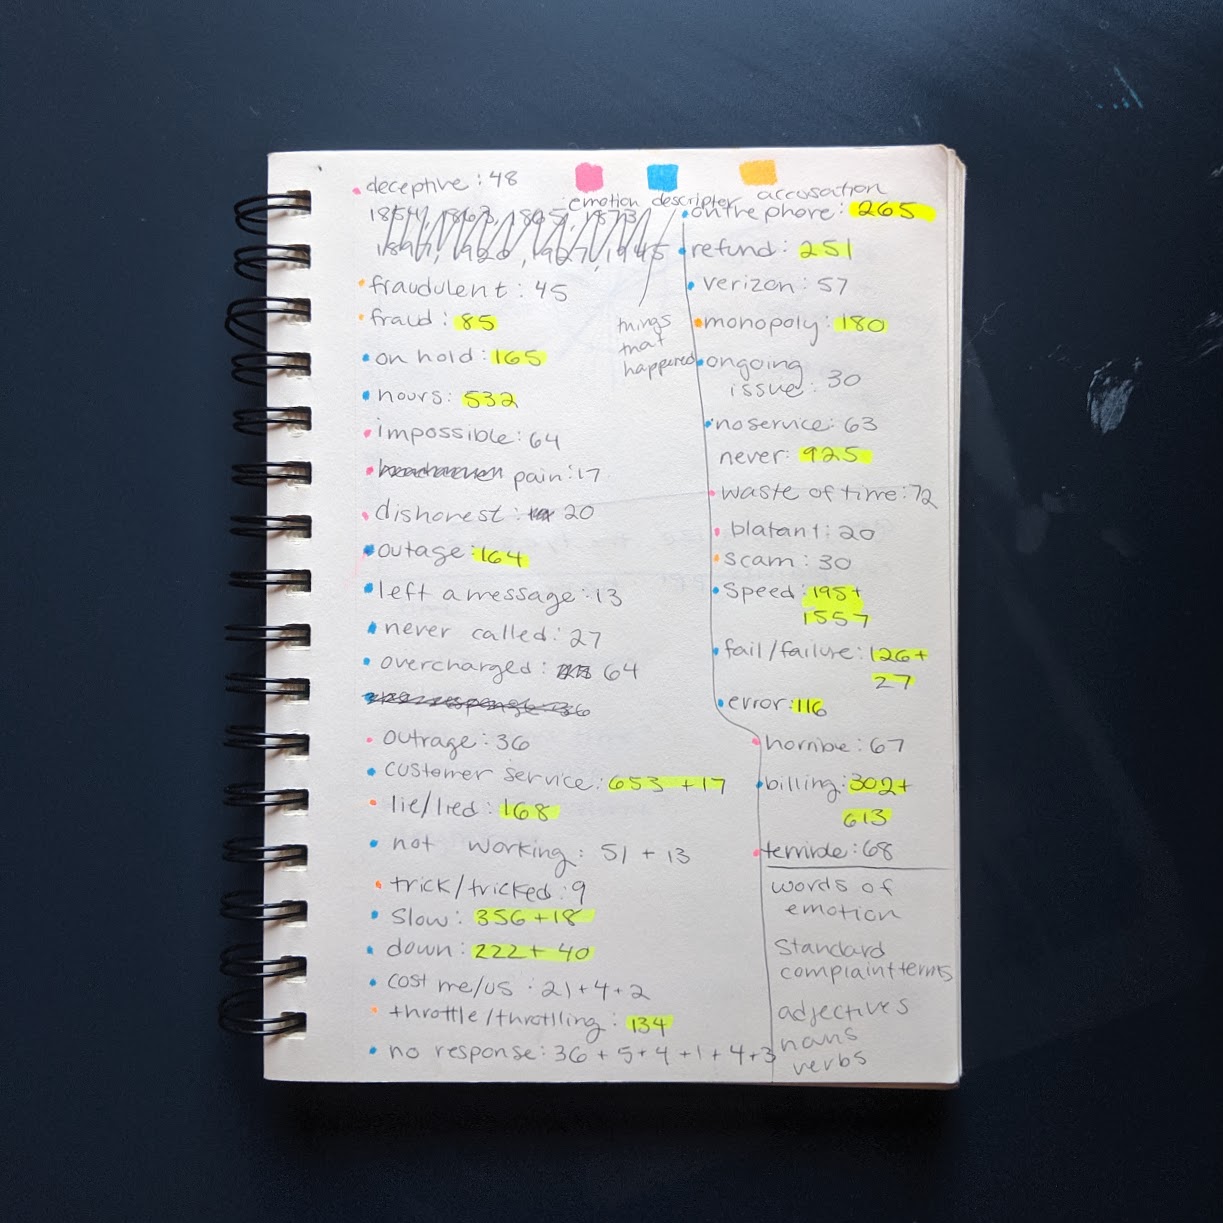 deceptive : 48
emotion
descripter
accusation
fraudulent : 45
fraud : 85
on hold : 165
hours : 532
impossible : 64
pain : 17
dishonest : 20
outage : 164
left a message : 13
never called : 27
overcharged : 64
outrage : 36
customer service : 653 + 17
lie/lied : 168
not working : 51 + 13
trick/tricked : 9
slow : 356 + 18
down : 222 + 40
cost me/us : 21 + 4 + 2
throttle/throttling : 134
no response : 36 + 5 + 4 + 1 + 4 + 3
things
that
happened
on the phone : 265
refund : 251
verizon : 57
monopoly : 180
ongoing
issue : 30
no service : 63
never : 925
waste of time : 72
blatant : 20
scam : 30
speed : 195 +
1557
fail/failure : 126 +
27
error : 116
horrible : 67
billing : 302 +
613
terrible : 68
words of
emotion
standard
complaint terms
adjectives
nouns
verbs